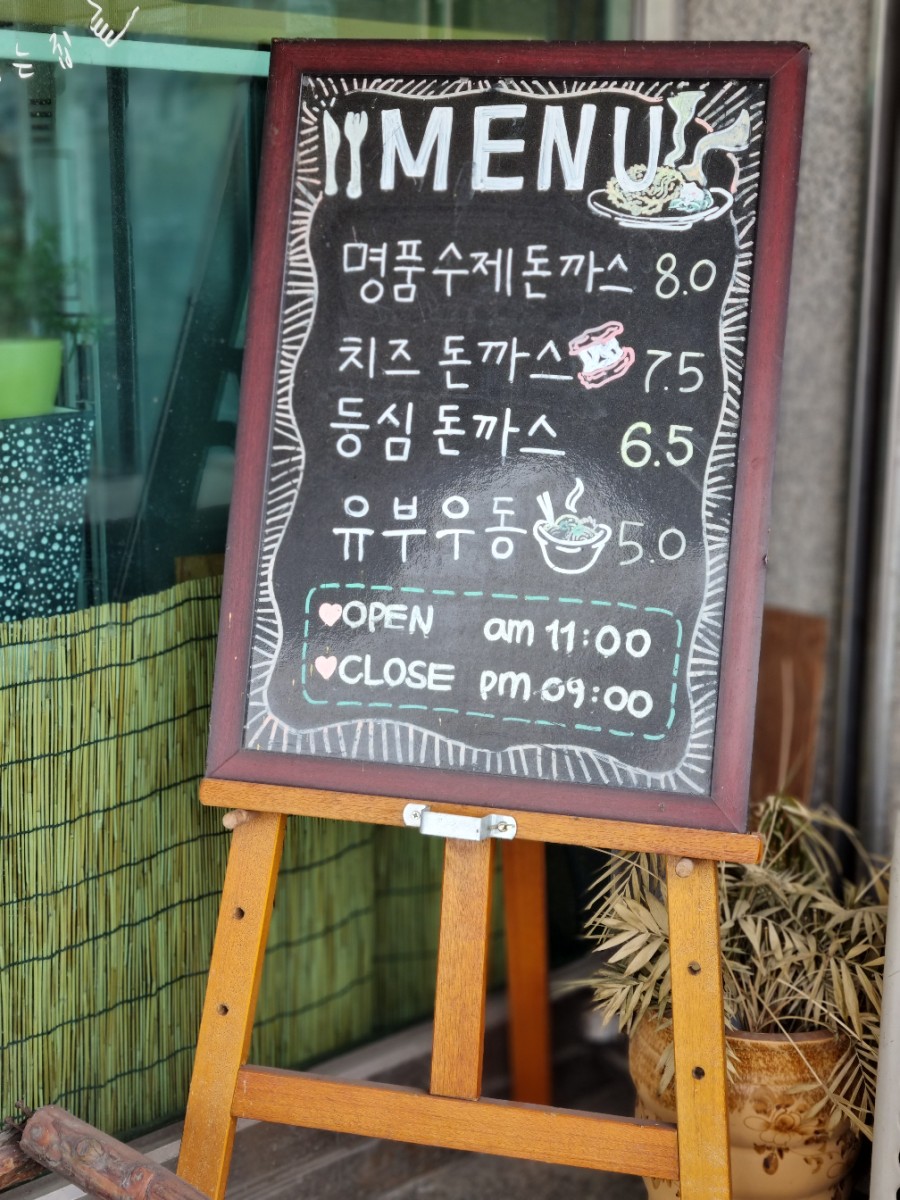 는집
MENU
명품수제돈까스 8.0
치즈 돈까스 7.5
등심 돈까스 6.5
유부우동 5.0
OPEN am 11:00
CLOSE pm 09:00